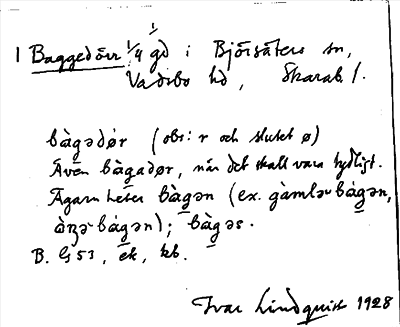 1 Baggedörr 1/4 gd i Björsäters sn,
Vadsbo hd, Skarab. l.
bàgədǿr (obs: r och slutet ø)
Även bàgadør, när det skall vara tydligt.
Ägarn heter bàgən (ex. gàmlə bágən,
bágən); bàgəs.
B. G 53, ek, kb.
Ivar Lindquist 1928